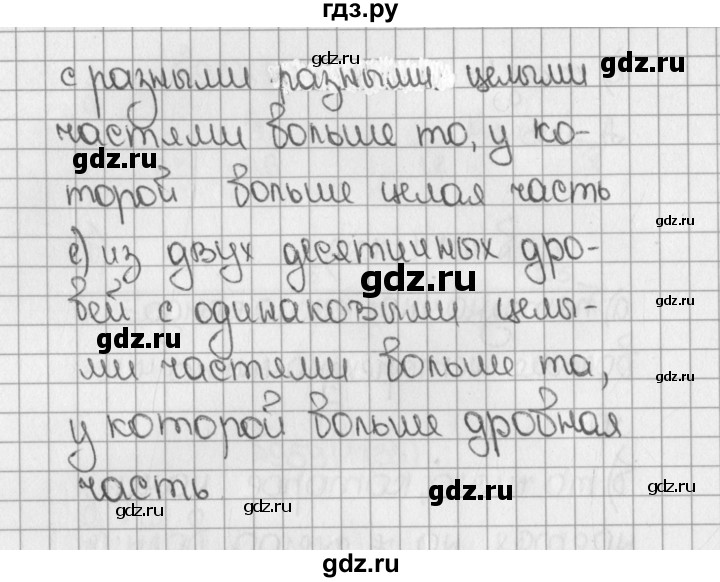 гдз.ру
с разными разными целыми
частями больше то, у ко-
торой больше целая часть
е) из двух десятичных дро-
бей с одинаковыми целы-
ми частями больше та,
у которой больше дробная
часть
gdz.ru
gdz.ru
gdz.ru
gdz.ru
gdz.ru
gdz.ru
gdz.ru
gdz.ru
gdz.ru
gdz.ru
gdz.ru
gdz.ru
gdz.ru